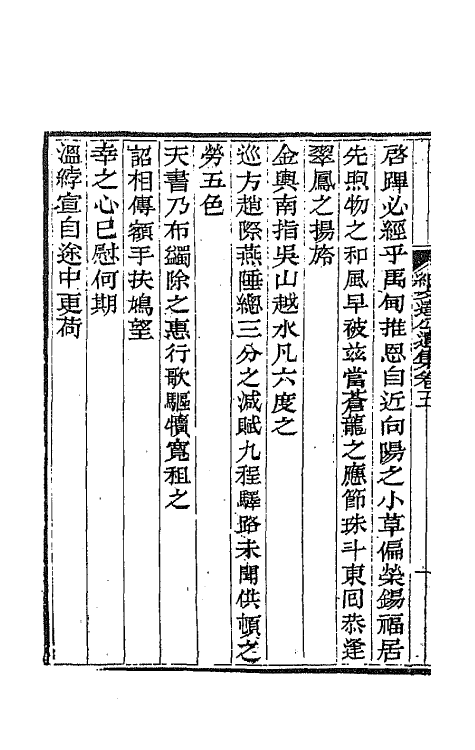 紀文達公遺集卷五
啓蹕必經乎禹甸推恩自近向陽之小草偏榮錫福居
先煦物之和風早被玆當蒼龍之應節珠斗東回恭逢
翠鳳之揚旂
金輿南指吳山越水凡六度之
巡方趙際燕陲總三分之減賦九程驛路未聞供頓之
勞五色
天書乃布蠲除之惠行歌驅犢寬租之
詔相傳額手扶鳩望
幸之心已慰何期
溫綍宣自途中更荷